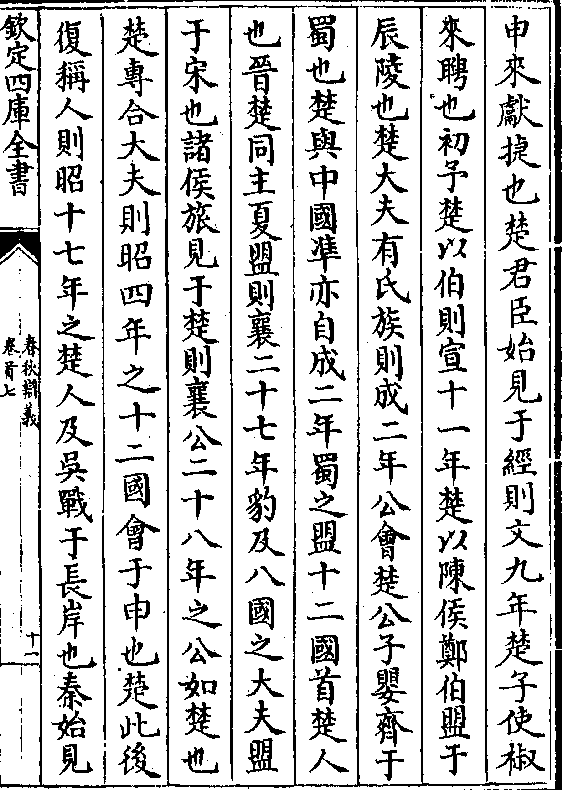 申來獻捷也楚君臣始見于經則文九年楚子使椒
來聘也初予楚以伯則宣十一年楚以陳侯鄭伯盟于
辰陵也楚大夫有氏族則成二年公會楚公子嬰齊于
蜀也楚與中國準亦自成二年蜀之盟十二國首楚人
也晉楚同主夏盟則襄二十七年豹及八國之大夫盟
于宋也諸侯旅見于楚則襄公二十八年之公如楚也
楚專合大夫則昭四年之十二國會于申也楚此後
復稱人則昭十七年之楚人及吳戰于長岸也秦始見
欽定四庫全書
春秋辯義
卷首七
十一